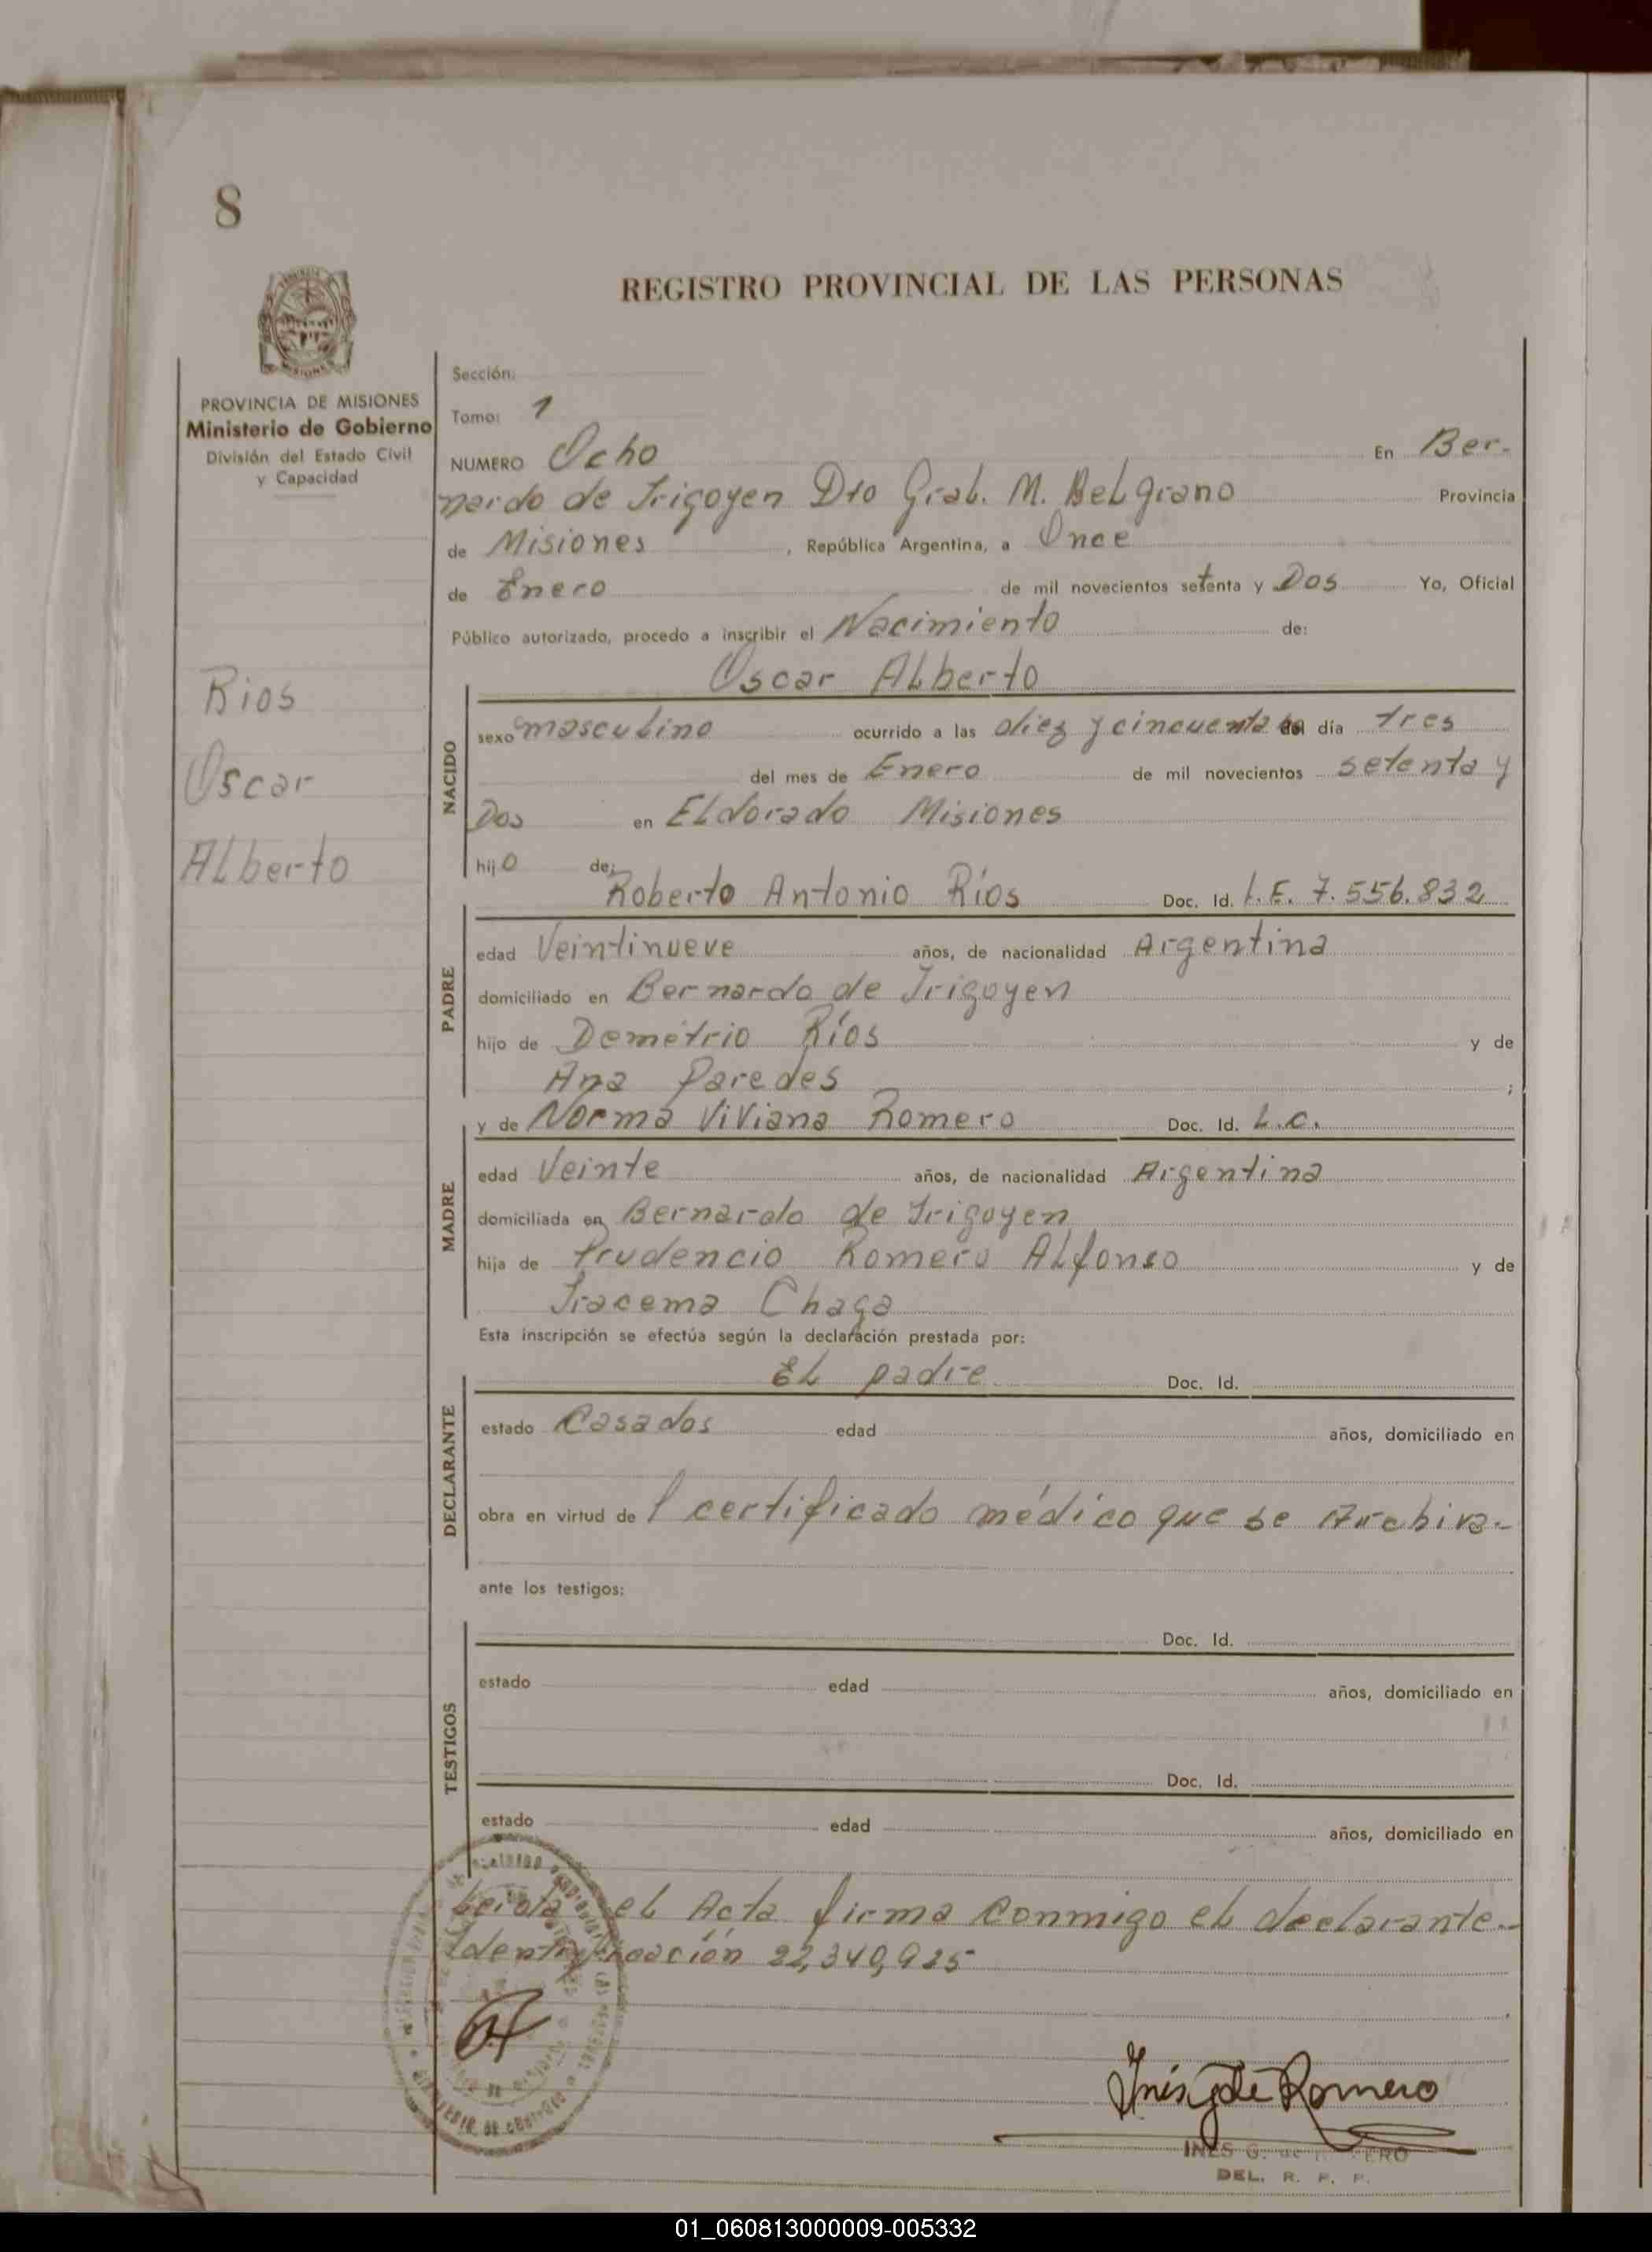 8
REGISTRO PROVINCIAL DE LAS PERSONAS
PROVINCIA DE MISIONES
Ministerio de Gobierno
División del Estado Civil
y Capacidad
Rios
Oscar
Alberto
Sección:
Tomo: 1
NUMERO Ocho En Ber-
nardo de Irigoyen Dto Gral. M. Belgrano Provincia
de Misiones, República Argentina, a Once
de Enero de mil novecientos setenta y Dos Yo, Oficial
Público autorizado, procedo a inscribir el Nacimiento de:
Oscar Alberto
NACIDO
sexo masculino ocurrido a las diez y cincuenta del día tres
del mes de Enero de mil novecientos setenta y
Dos en Eldorado Misiones
hijo de:
Roberto Antonio Ríos Doc. Id. L.E. 7.556.832
PADRE
edad Veintinueve años, de nacionalidad Argentina
domiciliado en Bernardo de Irigoyen
hijo de Demétrio Ríos y de
Ana Paredes ;
y de Norma Viviana Romero Doc. Id. L.C.
MADRE
edad Veinte años, de nacionalidad Argentina
domiciliada en Bernardo de Irigoyen
hija de Prudencio Romero Alfonso y de
Iracema Chaga
Esta inscripción se efectúa según la declaración prestada por:
El padre Doc. Id.
DECLARANTE
estado Casados edad años, domiciliado en
obra en virtud de l certificado médico que se Archiva-
ante los testigos:
Doc. Id.
TESTIGOS
estado edad años, domiciliado en
Doc. Id.
estado edad años, domiciliado en
Leida el Acta firma conmigo el declarante.-
Identificación 22,340,925
Inés G de Romero
INES G. de ROMERO
DEL. R. P. P.
01_060813000009-005332